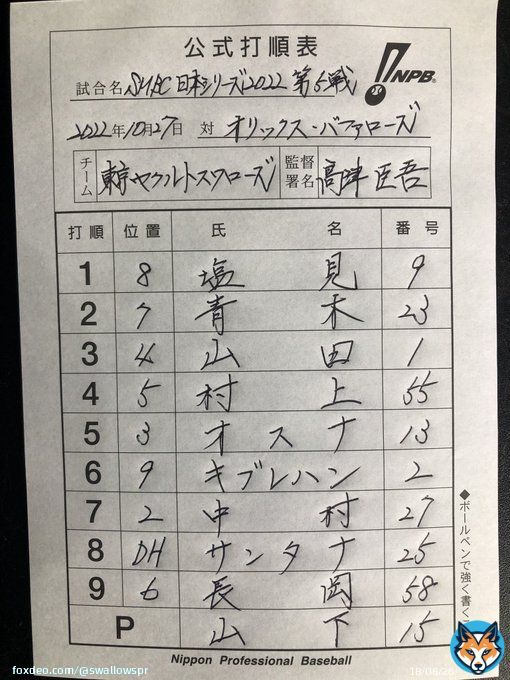 公式打順表
NPB
試合名 SMBC日本シリーズ2022 第5戦
2022年10月27日 対 オリックス・バファローズ
チーム 東京ヤクルトスワローズ 監督署名 髙津臣吾
打順 位置 氏名 番号
1 8 塩見 9
2 7 青木 23
3 4 山田 1
4 5 村上 55
5 3 オスナ 13
6 9 キブレハン 2
7 2 中村 27
8 DH サンタナ 25
9 6 長岡 58
P 山下 15
◆ボールペンで強く書く
Nippon Professional Baseball
foxdeo.com/@swallowspr